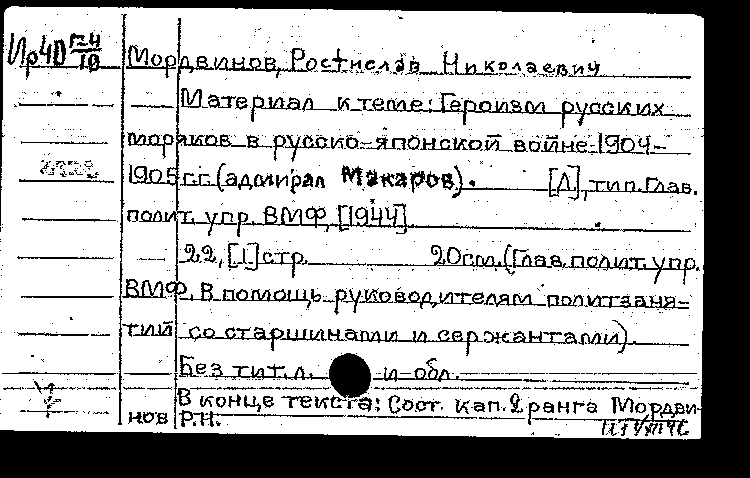 Ир4D 124/10
Мордвинов, Ростислав Николаевич
Материал к теме: Героизм русских
моряков в русско-японской войне 1904-
1905 г.г. (адмирал Макаров). [Л], тип. Глав.
полит. упр. ВМФ, [1944]
22, [1] стр. 20 см. (Глав. полит. упр.
ВМФ. В помощь руководителям политзаня-
тий со старшинами и сержантами).
Без тит. л. и обл.
В конце текста: Сост. кап. 2 ранга Мордви-
нов Р.Н.